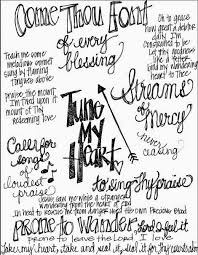 Come Thou Font
of every
blessing
Teach me some
melodious sonnet
sung by flaming
tongues above
praise the mount
I'm fixed upon it
mount of Thy
redeeming love
Oh to grace
how great a debtor
daily I'm
constrained to be
Let thy goodness
like a fetter
bind my wandering
heart to Thee
Tune
My
Heart
Streams
of
Mercy
never
ceasing
Calls for
songs
of
loudest
praise
to sing Thy praise
Jesus sought me when a stranger
wandering from the heart of God
to rescue me from danger
Precious Blood
Prone to Wander Lord I feel it
prone to leave the God I love
Take my heart, take and seal it, seal it for Thy courts above